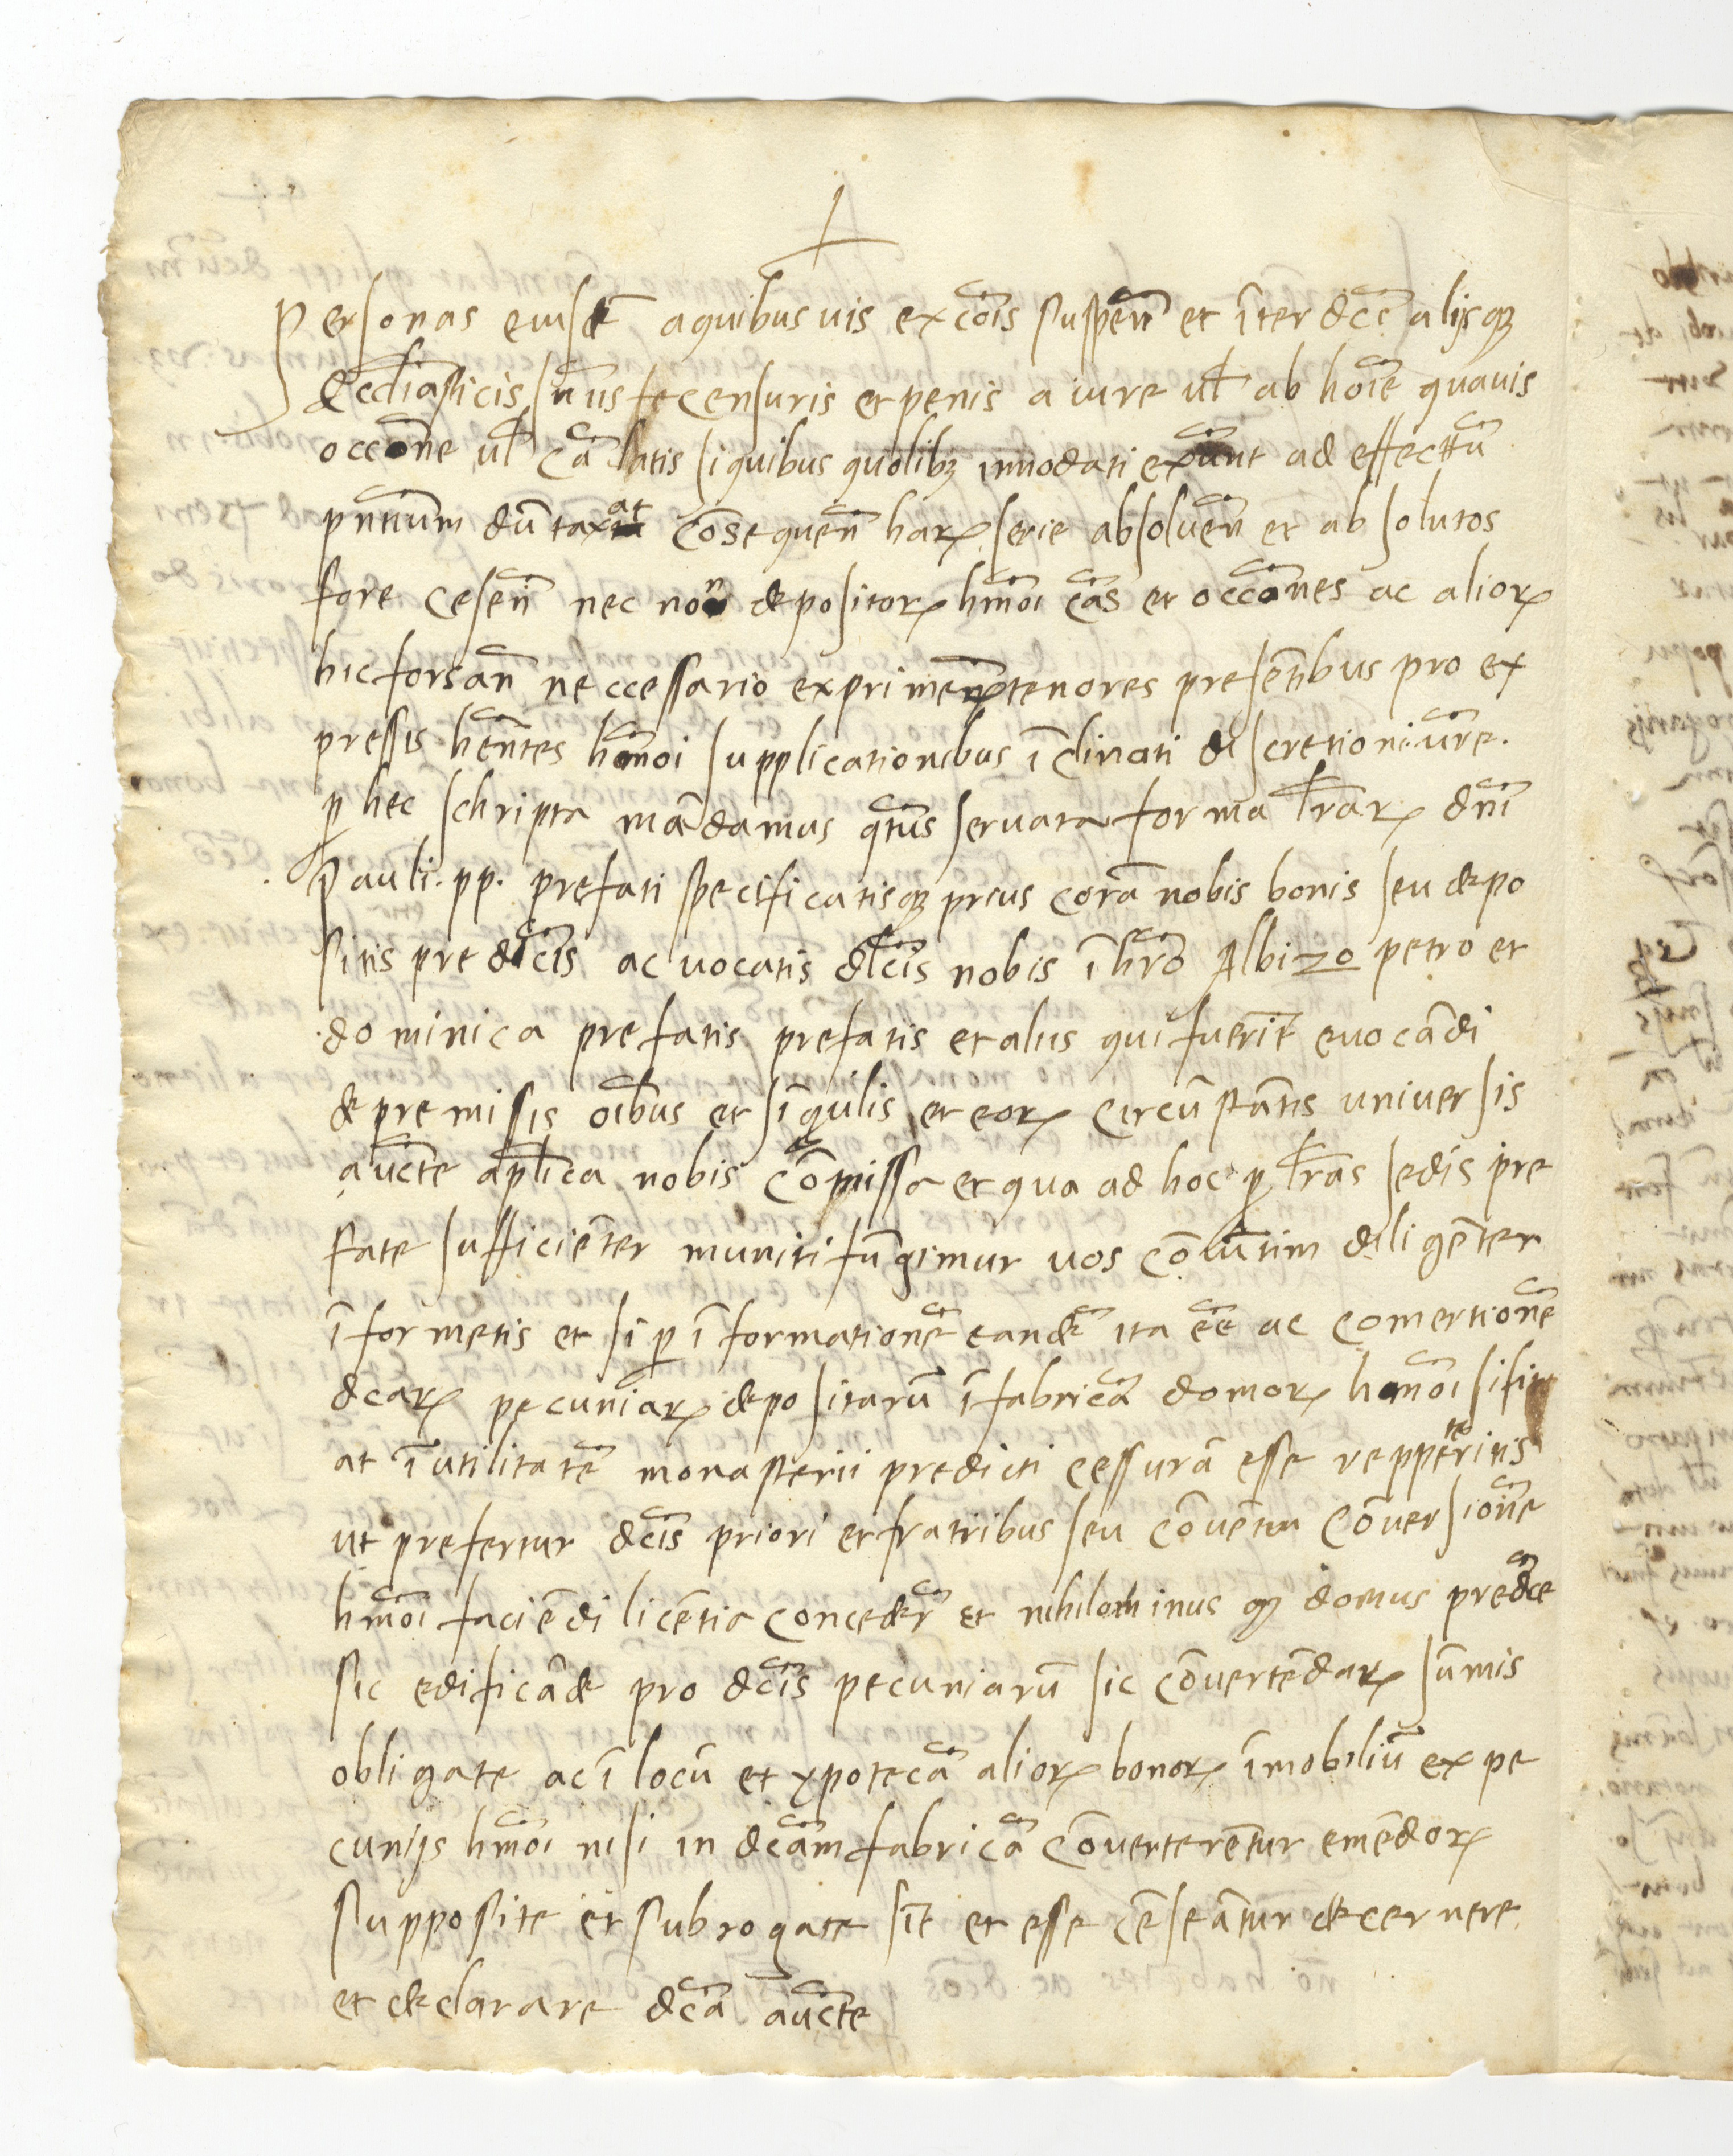 personas eiusdē a quibus uis excōis suspēn et īter dc̄is alijsq3
Eccl̄iasticis sn̄iis te censuris et penis a iure ul̄ ab hōie quauis
occōne ul̄ cā latis si quibus quolib3 innodati exn̄unt ad effectū
pn̄tium dūtaxat cōsequēn̄ harꝝ serie absoluēn̄ et absolutos
fore cesēn̄ nec non depositorꝝ hm̄oi cās et occōnes ac aliorꝝ
hic forsān̄ neccessario exprimēn̄ tenores presētibus pro ex
pressis hēn̄tes hm̄oi supplicationibus īclinati discretioni ūre.
ꝑ hec schripta mādamus qt̄us seruata forma lr̄arꝝ dn̄i
Pauli. pp. prefati specificatisq3 prius corā nobis bonis seu depo
sitis predic̄is ac uocatis dc̄is nobis ī hr̄o Albizo petro et
dominica prefatis prefatis et aliis qui fuerīt euocādi
de premissis oīb̄us et sīgulis et eorꝝ circūstātis universis
auc̄te apl̄ica nobis cōmissa et qua ad hoc ꝑ lr̄as sedis pre
fate sufficiēter muniti fūgimur uos cōiūtim diligēter
īformetis et si ꝑ īformationē eandē ita eē ac comertionē
dcarꝝ pecuniarꝝ depositarū ī fabricā domorꝝ hm̄oi si fi
at ī utilitatē monasterii predicti cessurā esse repperitis
ut prefertur dc̄is priori et fratribus seu cōuētui cōuersionē
hm̄oi faciēdi licētia concedeř et nihilominus q3 domus predc̄e
sic edificāde pro dc̄is pecuniarū sic cōuertēdarꝝ sūmis
obligate ac ī locū et ypotecā aliorꝝ bonorꝝ īmobiliū ex pe
cunijs hm̄oi nisi in dc̄am fabricā cōuerterētur emēdorꝝ
supposite et subrogate sīt et esse cēseātur decernere
et declarare dc̄a auc̄te